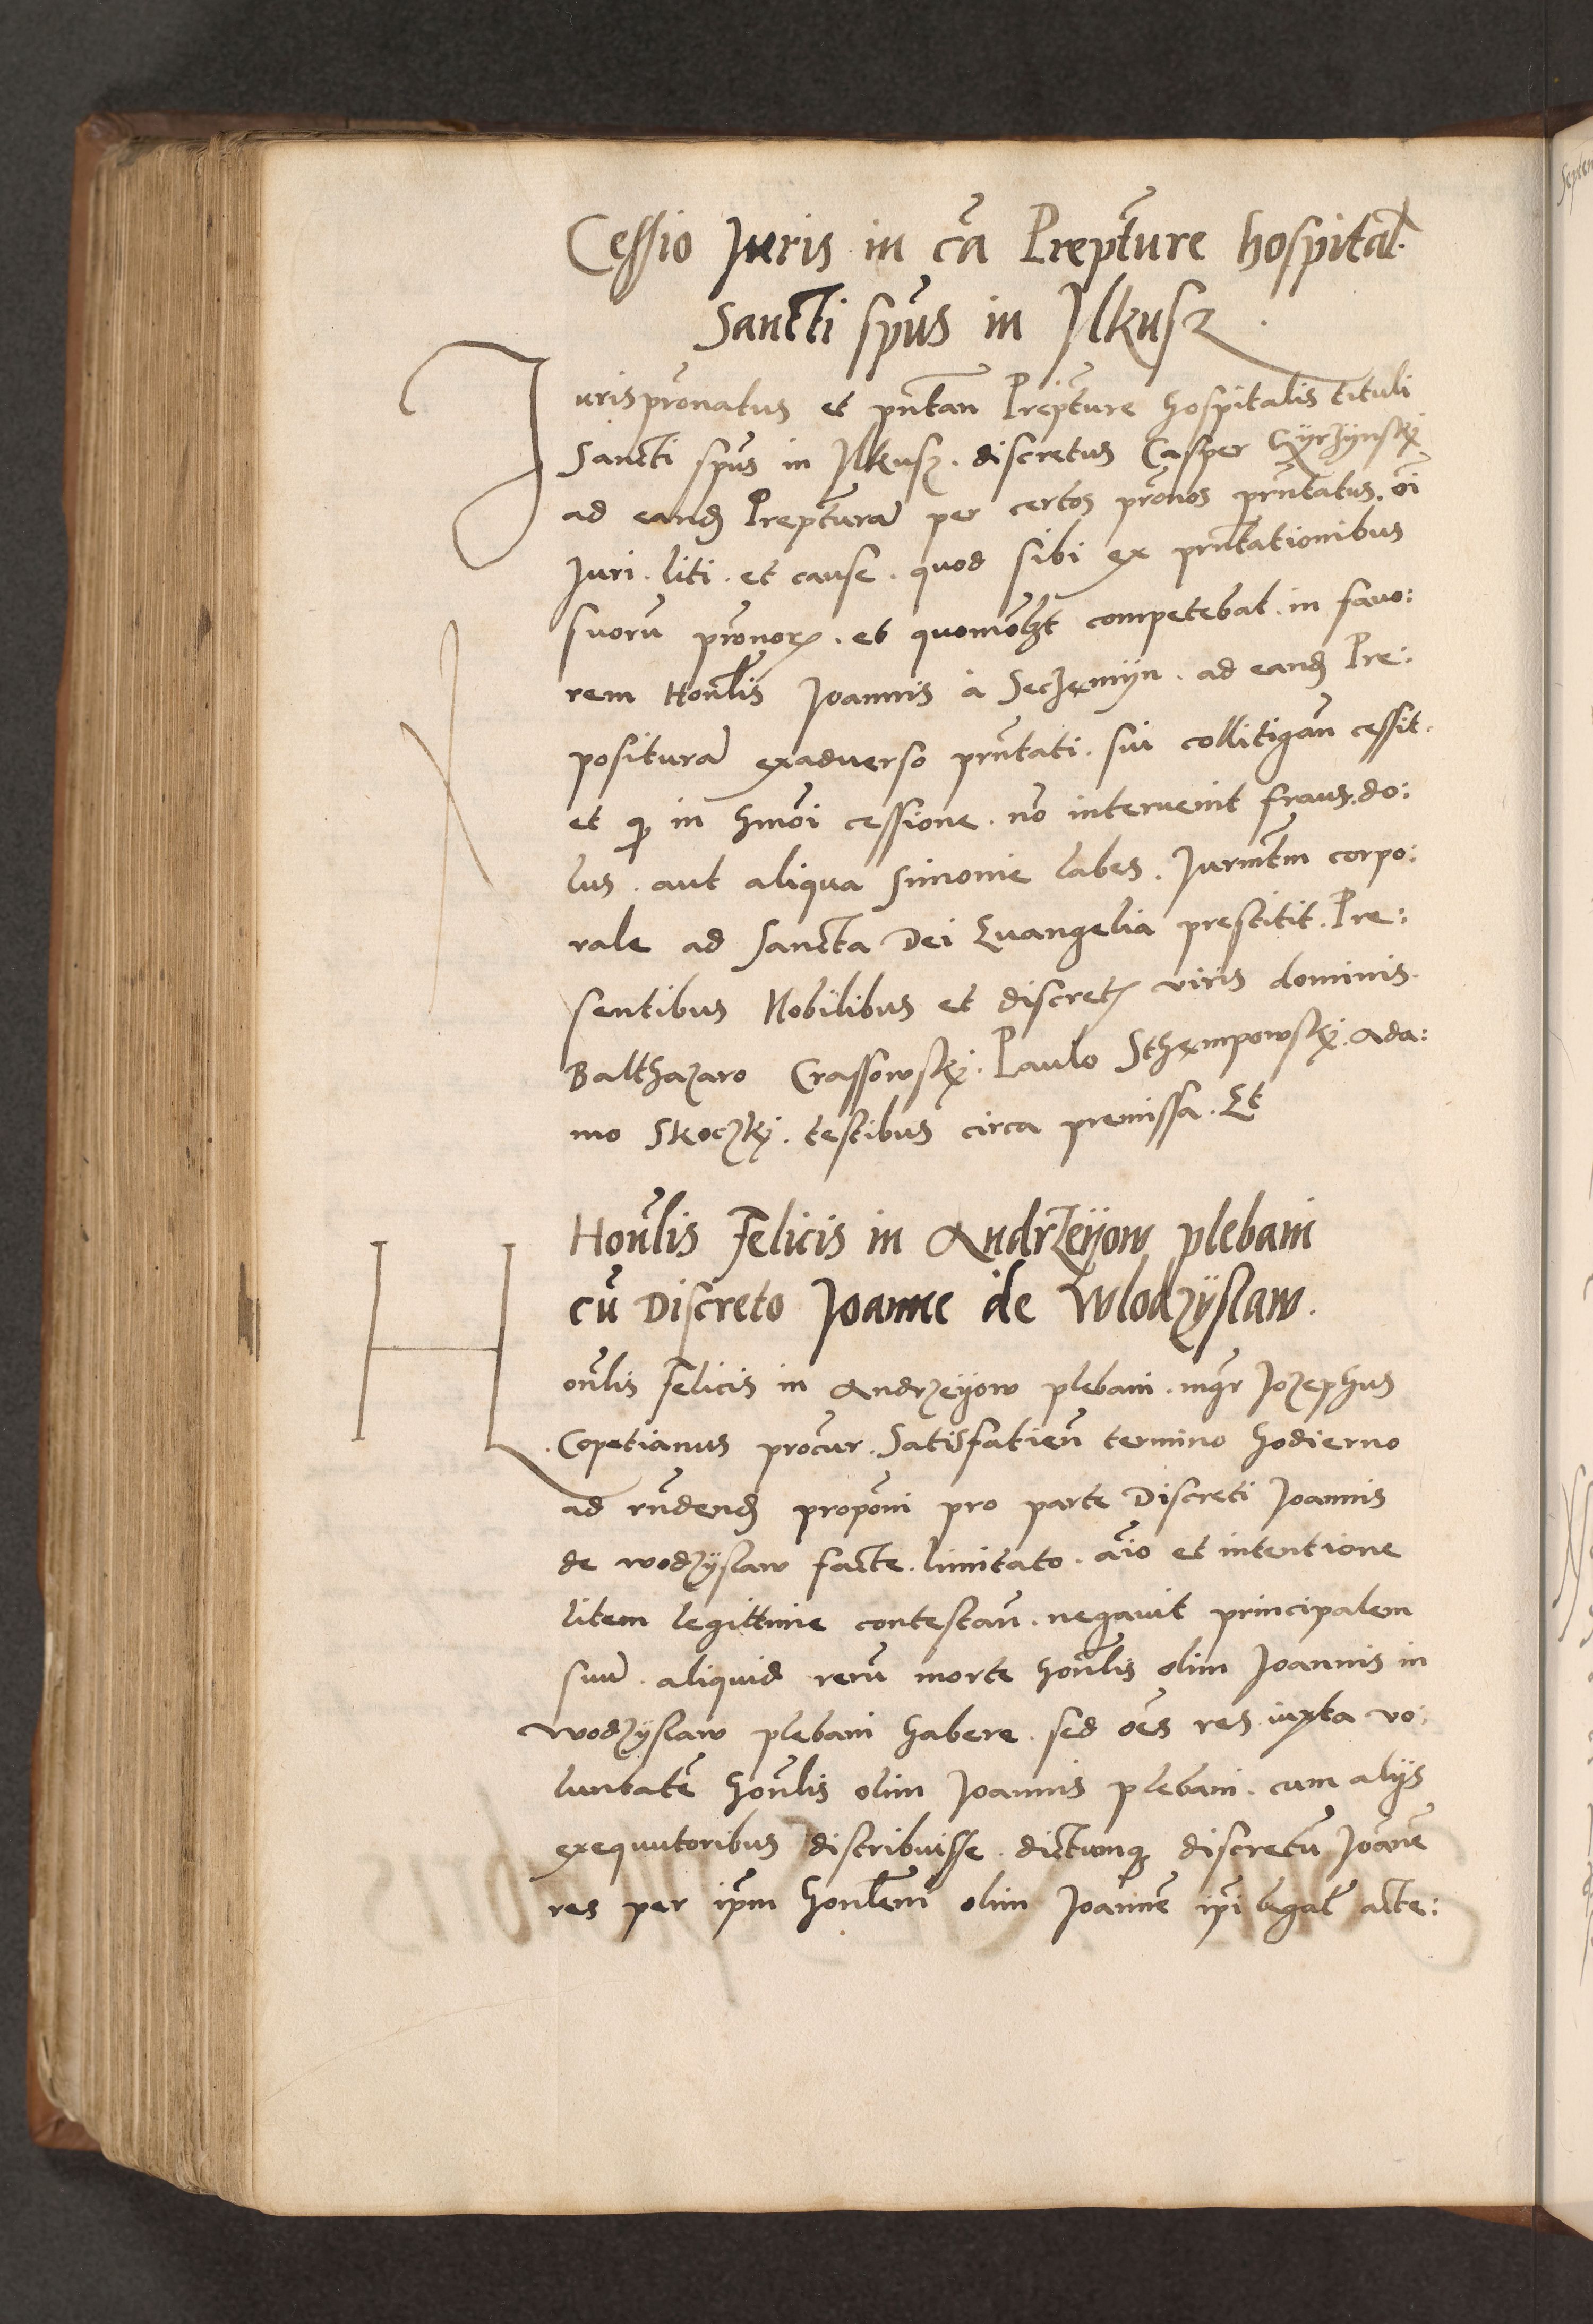 Cessio Juris in cã Prepture hospital.
Sancti spũs in Jlkusz.
Jurispronatus et pñtan Prepture hospitalis tituli
Sancti spũs in Jlkusz. discretus Casper
ad eand Prepturã per certos pronos prñtatus. oĩ
Juri. liti. et cause. quod sibi ex prñtationibus
suorũ pronor. et quomõlzt competebat. in favo:
rem Honlis Joannis a Seczemyn. ad eand Pre:
positurã exadverso prñtati. sui collitigañ cessit.
et q in hmõi cessione. nõ intervenit fraus. do:
lus. aut aliqua simonie labes. Jurmtm corpo:
rale ad Sancta Dei Evangelia prestitit. Pre:
sentibus Nobilibus et discret viris dominis.
Balthazaro Crassowskj. Paulo Sthempowskj. Ada:
mo Skoczkj. testibus circa premissa. Et
Honlis Felicis in Andrzeijow plebani
cũ Discreto Joanne de Wlodzyslaw.
Honlis Felicis in Andrzeijow plebani. mgr Jozephus
Copetianus procur. Satisfatieñ termino hodierno
ad rñdend proponi pro parte Discreti Joannis
de wodzyslaw facte. limitato. aĩo et intentione
litem legittime contestañ. negavit principalem
suũ. aliquid rerũ morte honlis olim Joannis in
wodzyslaw plebani habere. sed oẽs res iuxta vo:
luntatẽ honlis olim Joannis plebani. cum alijs
exequutoribus distribuisse. dictumq discretũ Joanẽ
res per ipm honlem olim Joannẽ ipi legat acte: